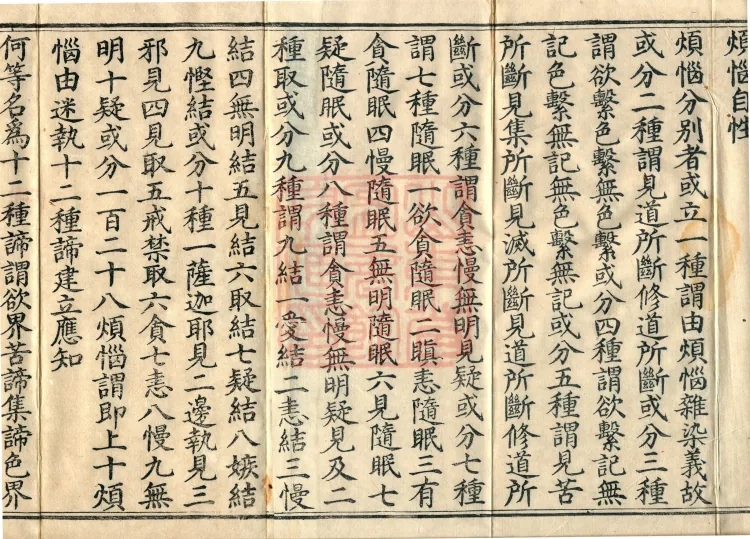 煩惱自性
煩惱分別者或立一種謂由煩惱雜染義故
或分二種謂見道所斷修道所斷或分三種
謂欲繫色繫無色繫或分四種謂欲繫記無
記色繫無記無色繫無記或分五種謂見苦
所斷見集所斷見滅所斷見道所斷修道所
斷或分六種謂貪恚慢無明見疑或分七種
謂七種隨眠一欲貪隨眠二瞋恚隨眠三有
貪隨眠四慢隨眠五無明隨眠六見隨眠七
疑隨眠或分八種謂貪恚慢無明疑見及二
種取或分九種謂九結一愛結二恚結三慢
結四無明結五見結六取結七疑結八嫉結
九慳結或分十種一薩迦耶見二邊執見三
邪見四見取五戒禁取六貪七恚八慢九無
明十疑或分一百二十八煩惱謂即上十煩
惱由迷執十二種諦建立應知
何等名為十二種諦謂欲界苦諦集諦色界